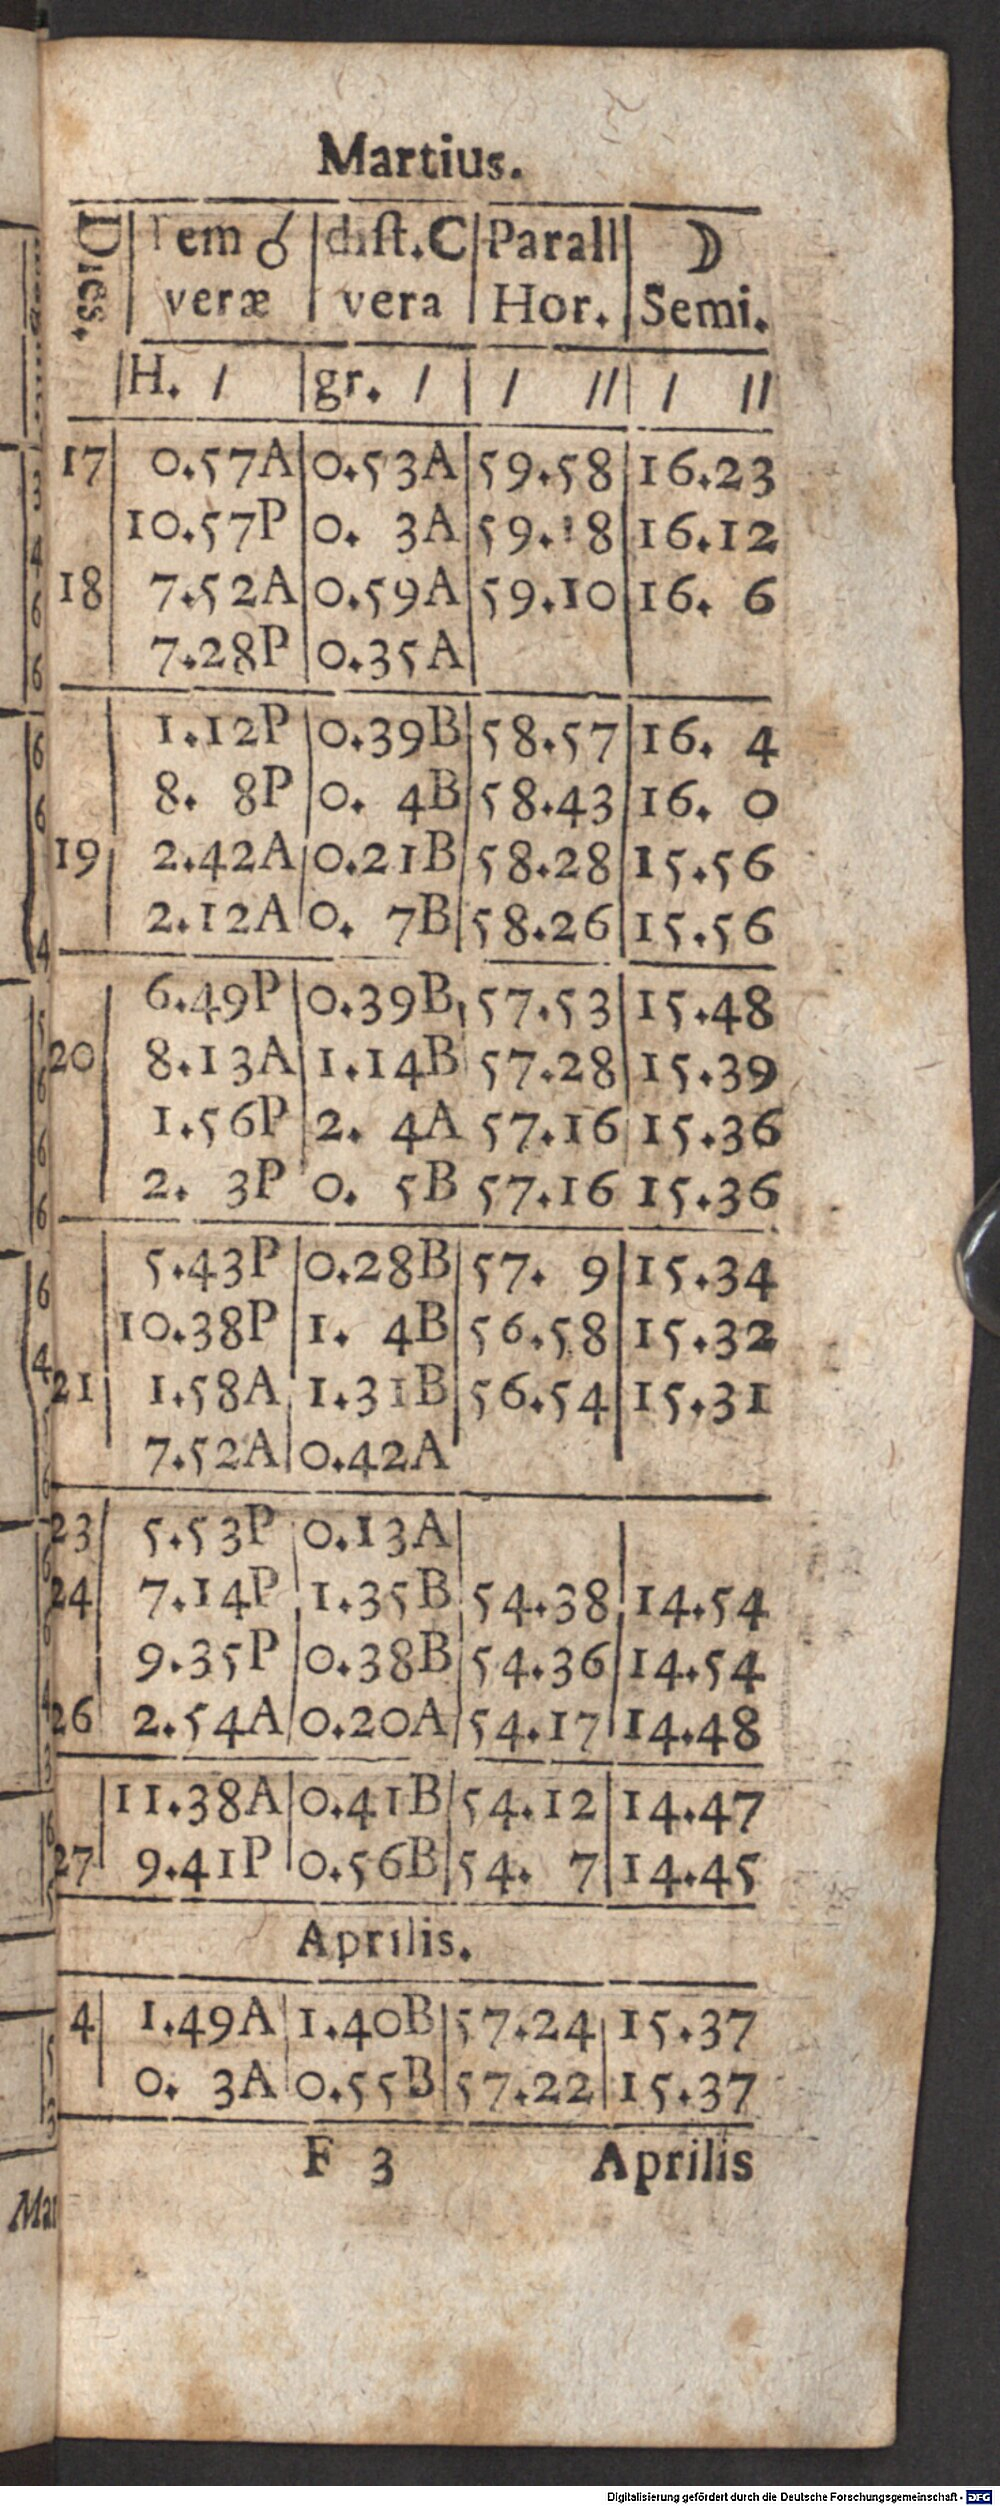 Martius.
Dies. | Tem ☌ | dist. C | Parall | ☽
veræ | vera | Hor. | Semi.
H. / | gr. / | / // | / //
17 | 0.57A | 0.53A | 59.58 | 16.23
10.57P | 0. 3A | 59.18 | 16.12
18 | 7.52A | 0.59A | 59.10 | 16. 6
7.28P | 0.35A
1.12P | 0.39B | 58.57 | 16. 4
8. 8P | 0. 4B | 58.43 | 16. 0
19 | 2.42A | 0.21B | 58.28 | 15.56
2.12A | 0. 7B | 58.26 | 15.56
6.49P | 0.39B | 57.53 | 15.48
20 | 8.13A | 1.14B | 57.28 | 15.39
1.56P | 2. 4A | 57.16 | 15.36
2. 3P | 0. 5B | 57.16 | 15.36
5.43P | 0.28B | 57. 9 | 15.34
10.38P | 1. 4B | 56.58 | 15.32
21 | 1.58A | 1.31B | 56.54 | 15.31
7.52A | 0.42A
23 | 5.53P | 0.13A
24 | 7.14P | 1.35B | 54.38 | 14.54
9.35P | 0.38B | 54.36 | 14.54
26 | 2.54A | 0.20A | 54.17 | 14.48
11.38A | 0.41B | 54.12 | 14.47
27 | 9.41P | 0.56B | 54. 7 | 14.45
Aprilis.
4 | 1.49A | 1.40B | 57.24 | 15.37
0. 3A | 0.55B | 57.22 | 15.37
F 3 Aprilis
Digitalisierung gefördert durch die Deutsche Forschungsgemeinschaft - DFG